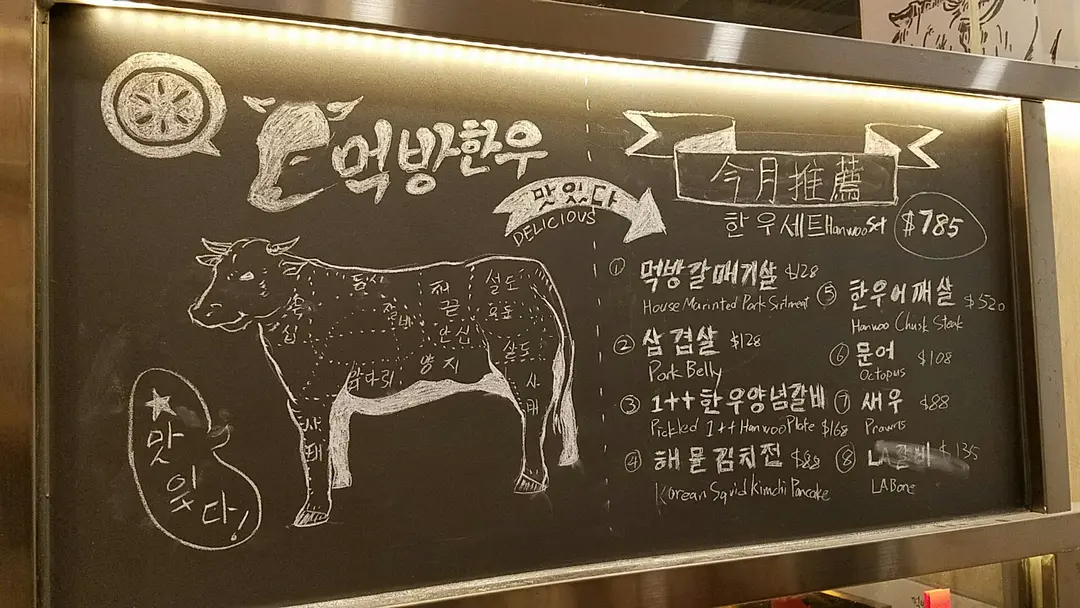 먹방한우
맛있다
DELICIOUS
今月推薦
한우세트 Hanwoo Set $785
① 먹방갈매기살 $128
House Marinted Pork Surtment
② 삼겹살 $128
Pork Belly
③ 1++한우양념갈비
Pickled 1++ Hanwoo Plate $168
④ 해물김치전 $88
Korean Squid Kimchi Pancake
⑤ 한우어깨살 $520
Hanwoo Chusk Steak
⑥ 문어 $108
Octopus
⑦ 새우 $88
Prawns
⑧ LA갈비 $135
LA Bone
등심
채끝
설도
안심
우둔
설도
앞다리
양지
사태
사태
맛
있
다!